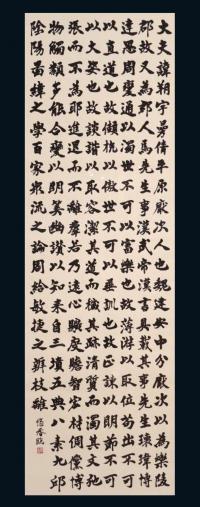 大夫諱朔字曼倩平原厭次人也魏建安中分厭次以為樂陵
郡故又為郡人焉先生事漢武帝漢書具載其事先生瓌瑋博
達思周變通以濁世不可以富樂也故薄遊以取位苟出不可
以直道也故頡頏以傲世不可以垂訓也故正諫以明節不可
以久安也故談諧以取容潔其道而穢其跡清質而濁其文弛
張而不為耶進退而不離羣若乃遠心曠度贍智宏材倜儻博
物觸類多能合變以明筭幽讚以知來自三墳五典八素九邱
陰陽圖緯之學百家衆流之論周給敏捷之辯枝離